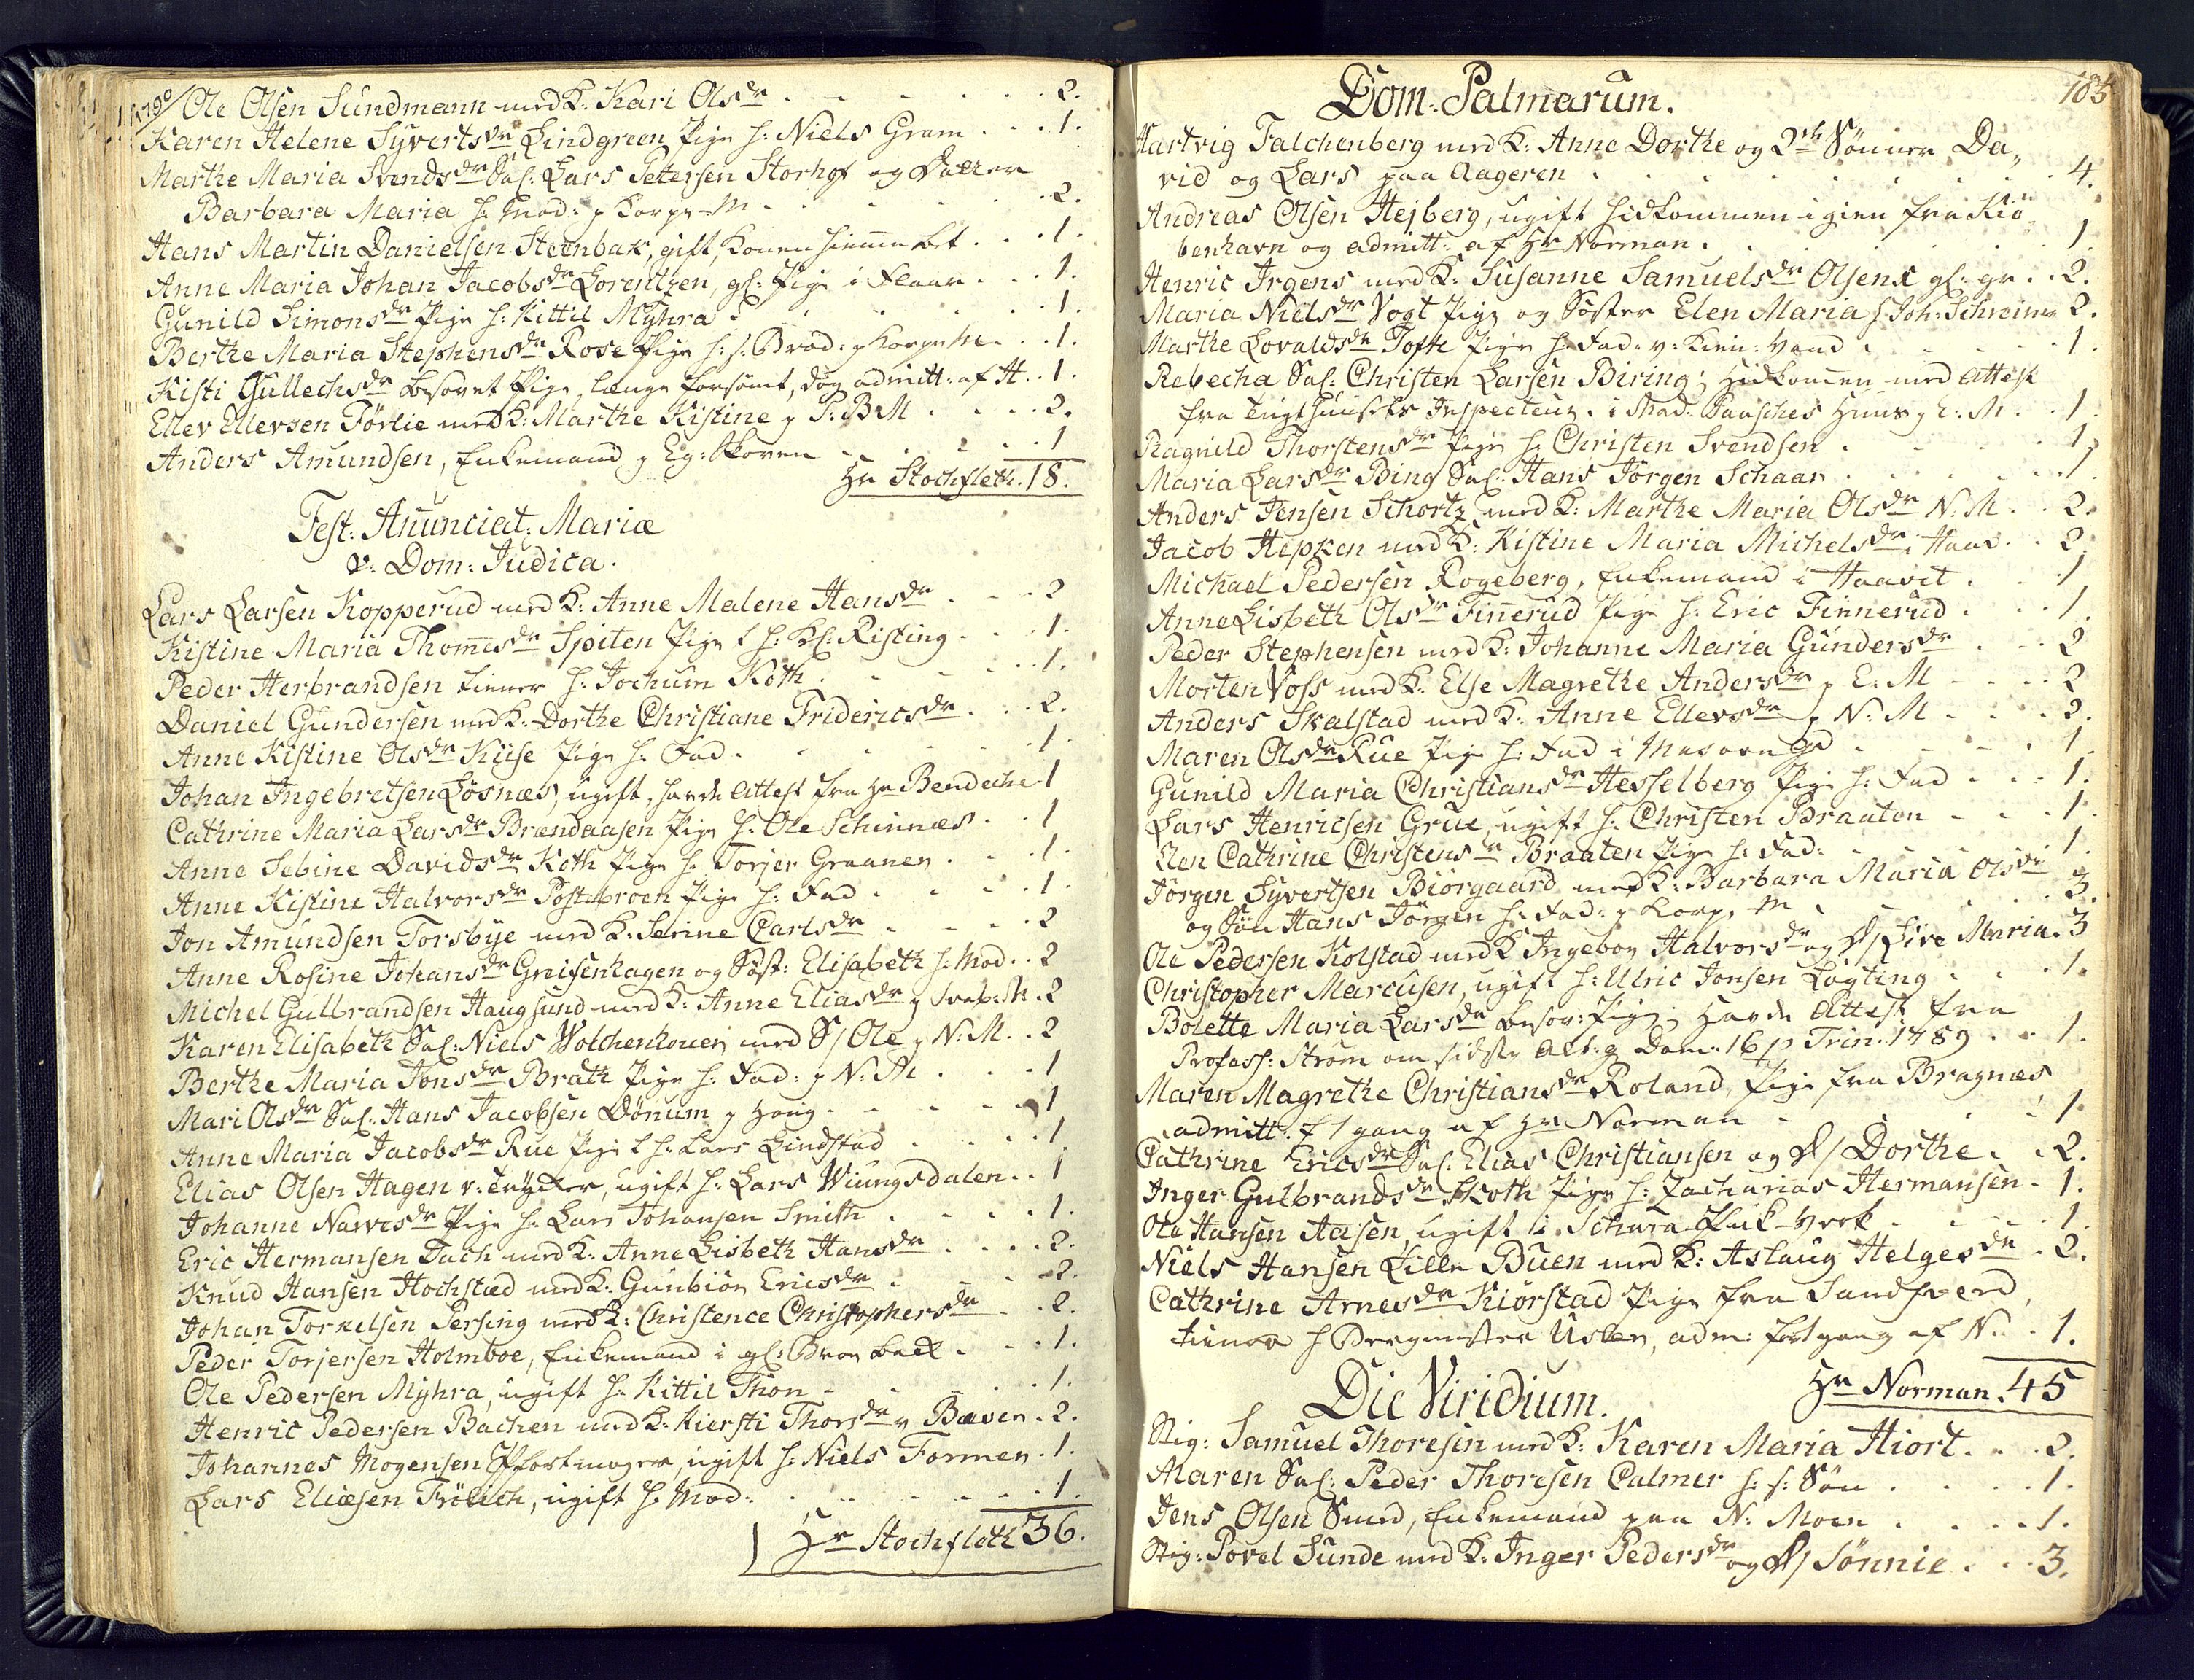 1790/ Ole Olsen Sundmann med K: Kari Olsdr . . . 2.
Karen Helene Syvertsdr Lindgreen Pige h: Niels Gram . . . 1.
Marthe Maria Svendsdr Sal: Lars Pettersen Storhof og Datter
Barbara Maria h: Mod: p Korpe-M . . . 2.
Hans Martin Danielsen Steenbak, gift, Konen hiemme bet . . 1.
Anne Maria Johan Jacobsdr Lorentzen, gl: Pige i Flaar . . 1.
Gunild Simonsdr Pige h: Kittil Myhra . . . 1.
Berthe Maria Stephensdr Rose Pige h: s: Brod: p Korpe M . . 1.
Kisti Gullechsdr besovet Pige, længe forsømt, dog admitt: af H . . 1.
Eller Ellersen Förlie med K: Marthe Kistine p P: B M . . . 2.
Anders Amundsen, Enkemand p Eg: Skoven . . . 1
Hr Stochfleth. 18.
Fest: Anunciat: Mariæ
v: Dom: Judica.
Lars Larsen Kopperud med K: Anne Malene Hansdr . . . 2
Kistine Maria Thomesdr Spiten Pige h: Kl: Risting . . . 1.
Peder Herbrandsen tiener h: Jochum Koth . . . 1.
Daniel Gundersen med K: Dorthe Christiane Fridericsdr . . . 2.
Anne Kistine Olsdr Kiise Pige h: Fad . . . 1.
Johan Ingebretsen Losnæs, ugift, havde Attest fra Hr Bendeche 1
Cathrine Maria Larsdr Brændaasen Pige h: Ole Schinnæs . . 1
Anne Sebine Davidsdr Koth Pige h: Torjer Graanen . . . 1.
Anne Kistine Halvorsdr Postebroen Pige h: Fad . . . 1.
Jon Amundsen Torsbye med K: Serine Carlsdr . . . 2
Anne Rosine Johansdr Greisenhagen og Søst: Elisabeth h: Mod . . 2
Michel Gulbrandsen Haugsund med K: Anne Eliasdr p M . 2
Karen Elisabeth Sal: Niels Wolchenhouer med S/ Ole p N: M . . 2
Berthe Maria Jonsdr Brath Pige h: Fad: p N: M . . . 1
Mari Olsdr Sal: Hans Jacobsen Dønum p Houg . . . 1
Anne Maria Jacobsdr Rue Pige h: Lars Lindstad . . . 1
Elias Olsen Hagen v: Trycker, ugift h: Lars Wiungsdalen . . 1
Johanne Narvesdr Pige h: Lars Johansen Smith . . . 1.
Eric Hermansen Tach med K: Anne Lisbeth Hansdr . . . 2.
Knud Hansen Hochstad med K: Gunbiør Ericsdr . . . 2.
Johan Torkelsen Persing med K: Christence Christophersdr . . 2.
Peder Torjersen Holmboe, Enkemand i gl: Broe bæk . . . 1.
Ole Pedersen Myhra, ugift h: Kittil Thon . . . 1.
Henric Pedersen Bachen med K: Kiersti Thorsdr v Bæven . 2.
Johannes Mogensen, ugift h: Niels Formen . 1.
Lars Eliæsen Frölich, ugift h: Mod: . . . 1.
Hr Stochfleth 36.
185
Dom: Palmarum.
Hartvig Falchenberg med K: Anne Dorthe og 2de Sønner Da,,
vid og Lars paa Aageren . . . 4.
Andreas Olsen Hejberg, ugift hidkommen igien fra Kiø
benhavn og admitt: af Hr Norman . . . 1
Henric Irgens med K: Susanne Samuelsdr Olsens gl: gr . . 2.
Maria Nielsdr Vogt Pige og Søster Elen Maria h: Joh: Schreiner 2.
Marthe Lovaldsdr Tofte Pige h: Fad: v: Kien: Vand . . . 1.
Rebecha Sal: Christen Larsen Biring; Hidkommen med Attest
fra Tugthuusets Inspecteur. i Mad: Paasches Huus p E: M . . 1.
Ragnild Thorstensdr Pige h: Christen Svendsen . . . 1.
Maria Larsdr Bing Sal: Hans Jørgen Schaar . . . 1.
Anders Jensen Schortz med K: Marthe Maria Olsdr N: M . . 2.
Jacob Hepken med K: Kistine Maria Michelsdr i Haav . . 2.
Michael Pedersen Rogeberg, Enkemand i Haavet . . . 1
Anne Lisbeth Olsdr Finnerud Pige h: Eric Finnerud . . . 1.
Peder Stephensen med K: Johanne Maria Gundersdr . . . 2
Morten Voss med K: Else Magrethe Andersdr p E: M . . . 2
Anders Skalstad med K: Anne Ellersdr p N: M . . . 2.
Maren Olsdr Rue Pige h: Fad i . . . 1
Gunild Maria Christiansdr Hesselberg Pige h: Fad . . . 1.
Lars Henricsen Grue, ugift h: Christen Braaten . . . 1.
Elen Cathrine Christensdr Braaten Pige h: Fad: . . . 1.
Jørgen Syvertsen Biørgaard med K: Barbara Maria Olsdr
og Søn Hans Jørgen h: Fad: p Korpe M . . . 3.
Ole Pedersen Kolstad med K Ingebor Halvorsdr og D/ Live Maria . 3
Christopher Marcusen, ugift h: Ulric Jonsen Løgting . . . 1.
Bolette Maria Larsdr besov: Pige, havde Attest fra
Profess: Strøm om sidste Alt:g Dom: 16 p Trin: 1789 . . 1.
Maren Magrethe Christiansdr Roland, Pige fra Bragnæs
admitt: f 1 gang af Hr Norman . . . 1.
Cathrine Ericsdr Sal: Elias Christiansen og D/ Dorthe . . 2.
Inger Gulbrandsdr Skoth Pige h: Zacharias Hermansen . 1.
Ole Hansen Aasen, ugift i Schara Puk-Verk . . . 1.
Niels Hansen Lille Buen med K: Aslaug Helgesdr . 2.
Cathrine Arnesdr Kiörstad Pige fra Sandsverd,
tiener h Bergmester Usler, adm: først gang af N. . 1.
Hr Norman. 45
Die Viridium.
Stig: Samuel Thoresen med K: Karen Maria Hiort . . . 2.
Maren Sal: Peder Thoresen Calmer h: s: Søn . . . 1.
Jens Olsen Smed, Enkemand paa N: Moen . . . 1.
Stig: Povel Sunde med K: Inger Pedersdr og D/ Sönnie . . . 3.